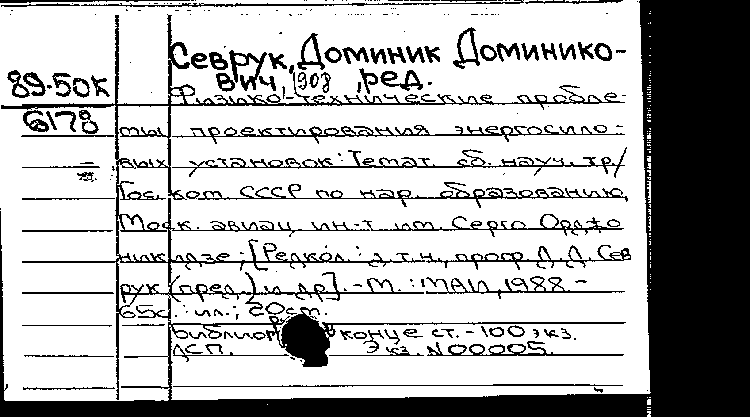 Севрук, Доминик Доминико-
вич, 1908 , ред.
89-50К
Физико-технические пробле-
6178
мы проектирования энергосило-
вых установок: Темат. сб. науч. тр/
Гос. ком. СССР по нар. образованию,
Моск. авиац. ин-т им. Серго Орджо
никидзе; [Редкол.: д.т.н., проф. Д.Д. Сев
рук (пред.) и др]. - М.: МАИ, 1988. -
65с.: ил.; 20см.
Библиогр в конце ст. - 100 экз.
ДСП. Экз. N00005.